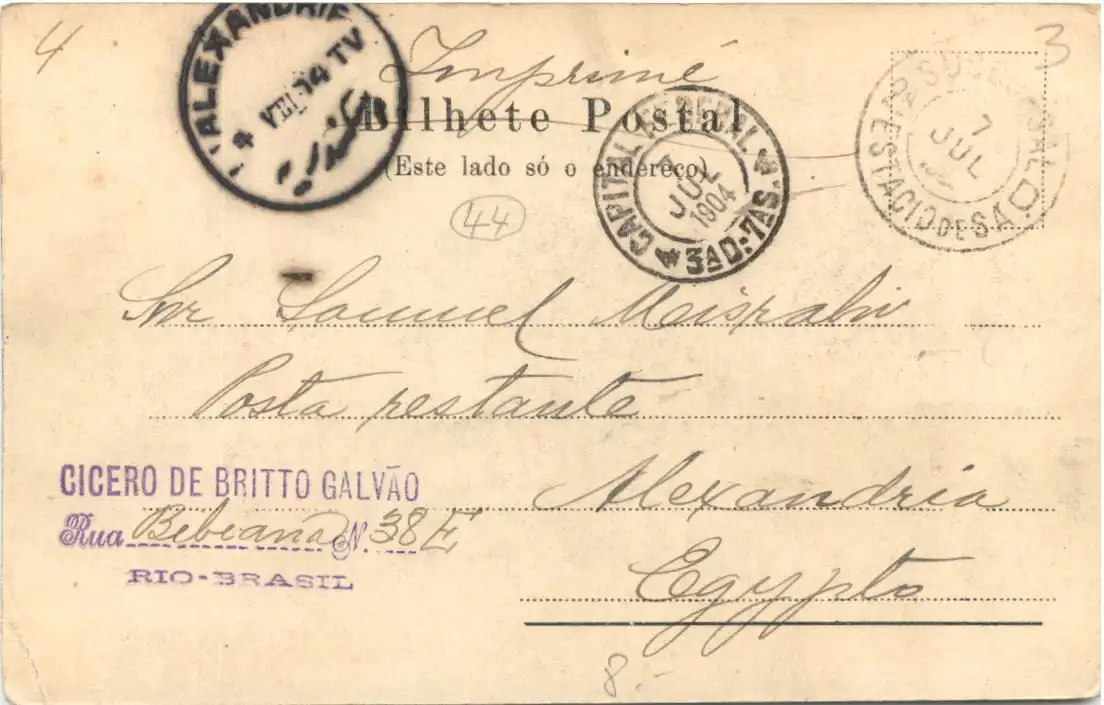 4
3
ALEXANDRIE
VIII 04 TV
Imprimé
Bilhete Postal
(Este lado só o endereço)
CAPITAL FEDERAL
7
JUL
1904
3ª D: 7ª S.
7
JUL
ESTACIO DE SÁ
44
Snr Samuel Meisrahi
Posta restante
CICERO DE BRITTO GALVÃO
Alexandria
Rua Bebiana N. 38 E
RIO-BRASIL
Egypto
8.-